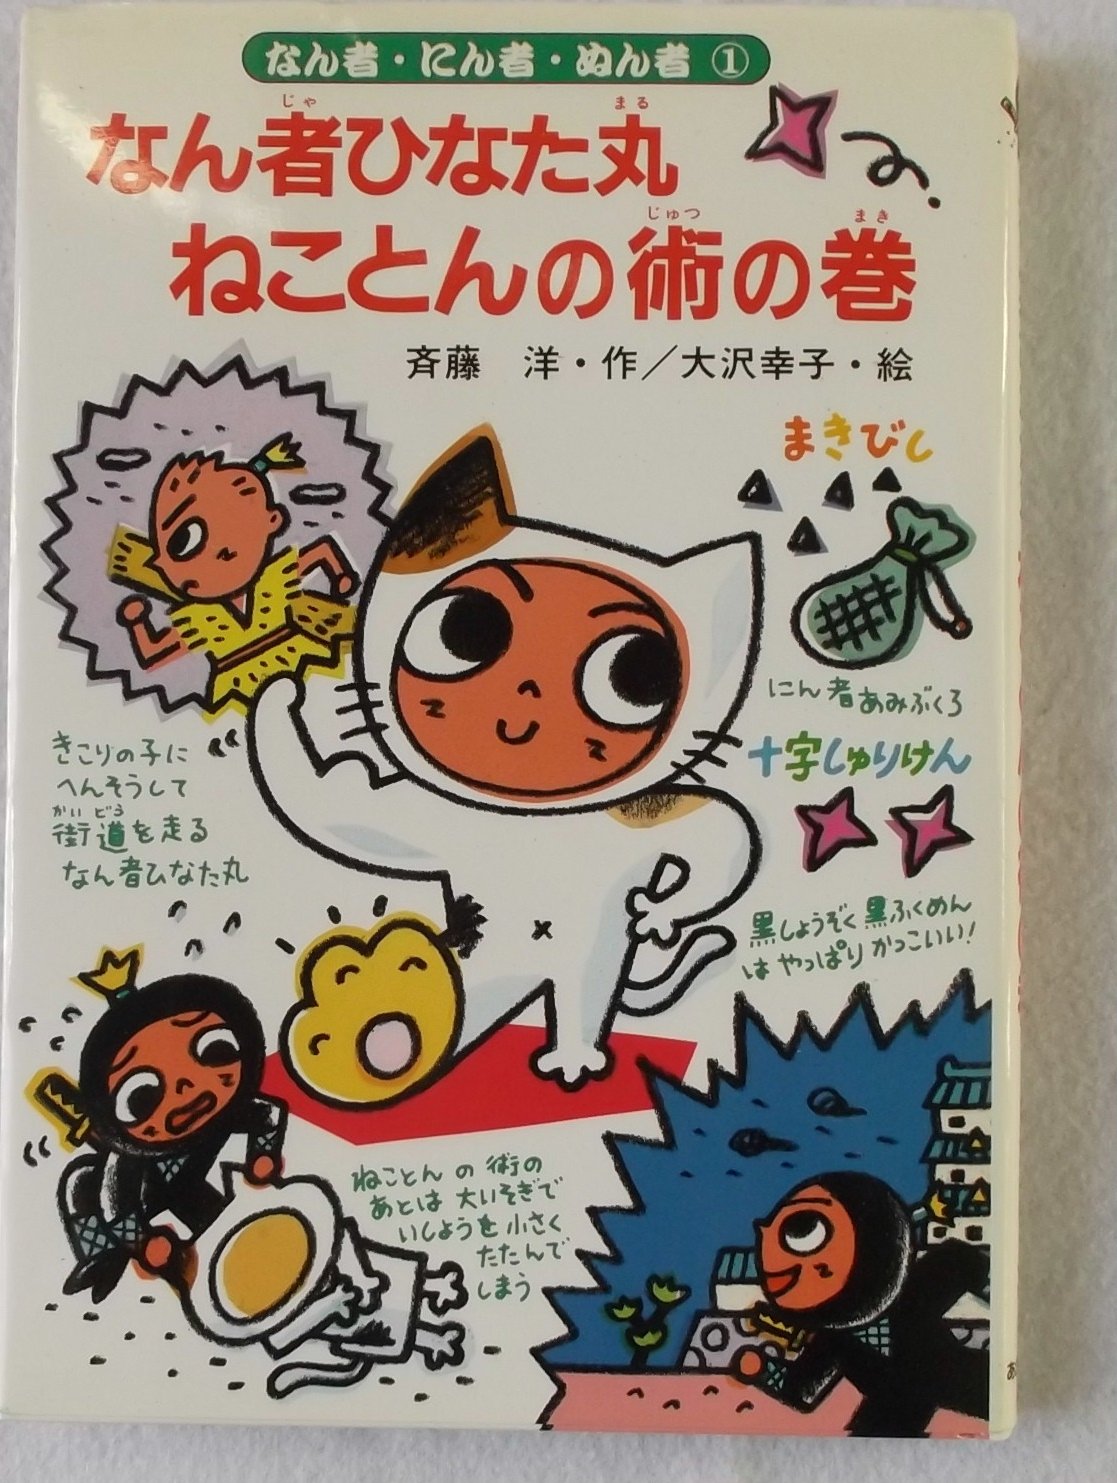 なん者・にん者・ぬん者 ①
じゃ まる
なん者ひなた丸
じゅつ まき
ねことんの術の巻
斉藤 洋・作／大沢幸子・絵
まきびし
にん者あみぶくろ
十字しゅりけん
黒しょうぞく黒ふくめん
はやっぱりかっこいい!
きこりの子に
へんそうして
かいどう
街道を走る
なん者ひなた丸
ねことんの術の
あとは大いそぎで
いしょうを小さく
たたんで
しまう
あ